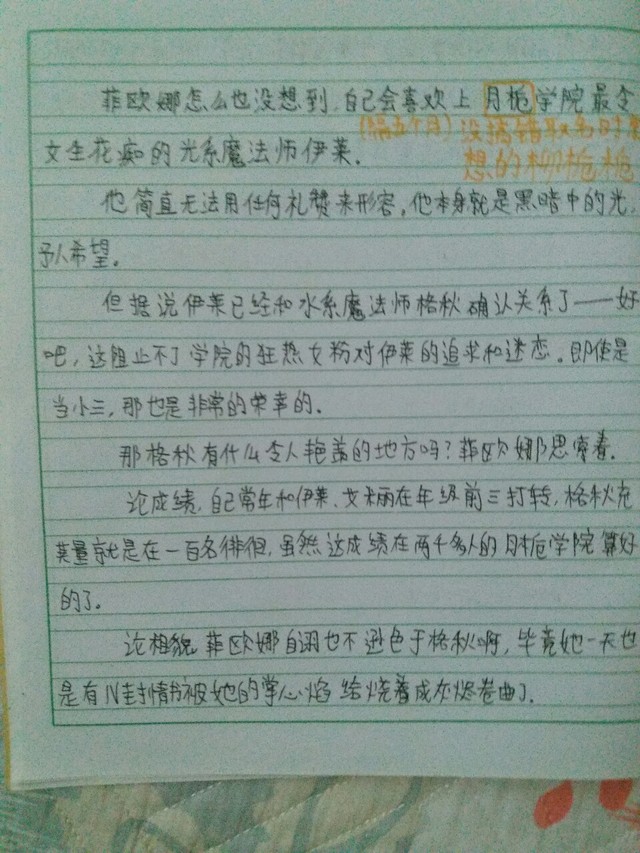 菲欧娜怎么也没想到,自己会喜欢上月栀学院最令
(隔五个月)没搞错取名时
女生花痴的光系魔法师伊莱.
想的柳栀栀
他简直无法用任何礼赞来形容,他本身就是黑暗中的光,
予人希望。
但据说伊莱已经和水系魔法师格秋确认关系了——好
吧,这阻止不了学院的狂热女粉对伊莱的追求和迷恋。即使是
当小三,那也是非常的荣幸的.
那格秋有什么令人艳羡的地方吗?菲欧娜思索着.
论成绩,自己常年和伊莱、艾丽在年级前三打转,格秋充
其量就是在一百名徘徊,虽然这成绩在两千多人的月栀学院算好
的了。
论相貌,菲欧娜自诩也不逊色于格秋啊,毕竟她一天也
是有N封情书被她的掌心焰给烧着成灰烬卷曲了.